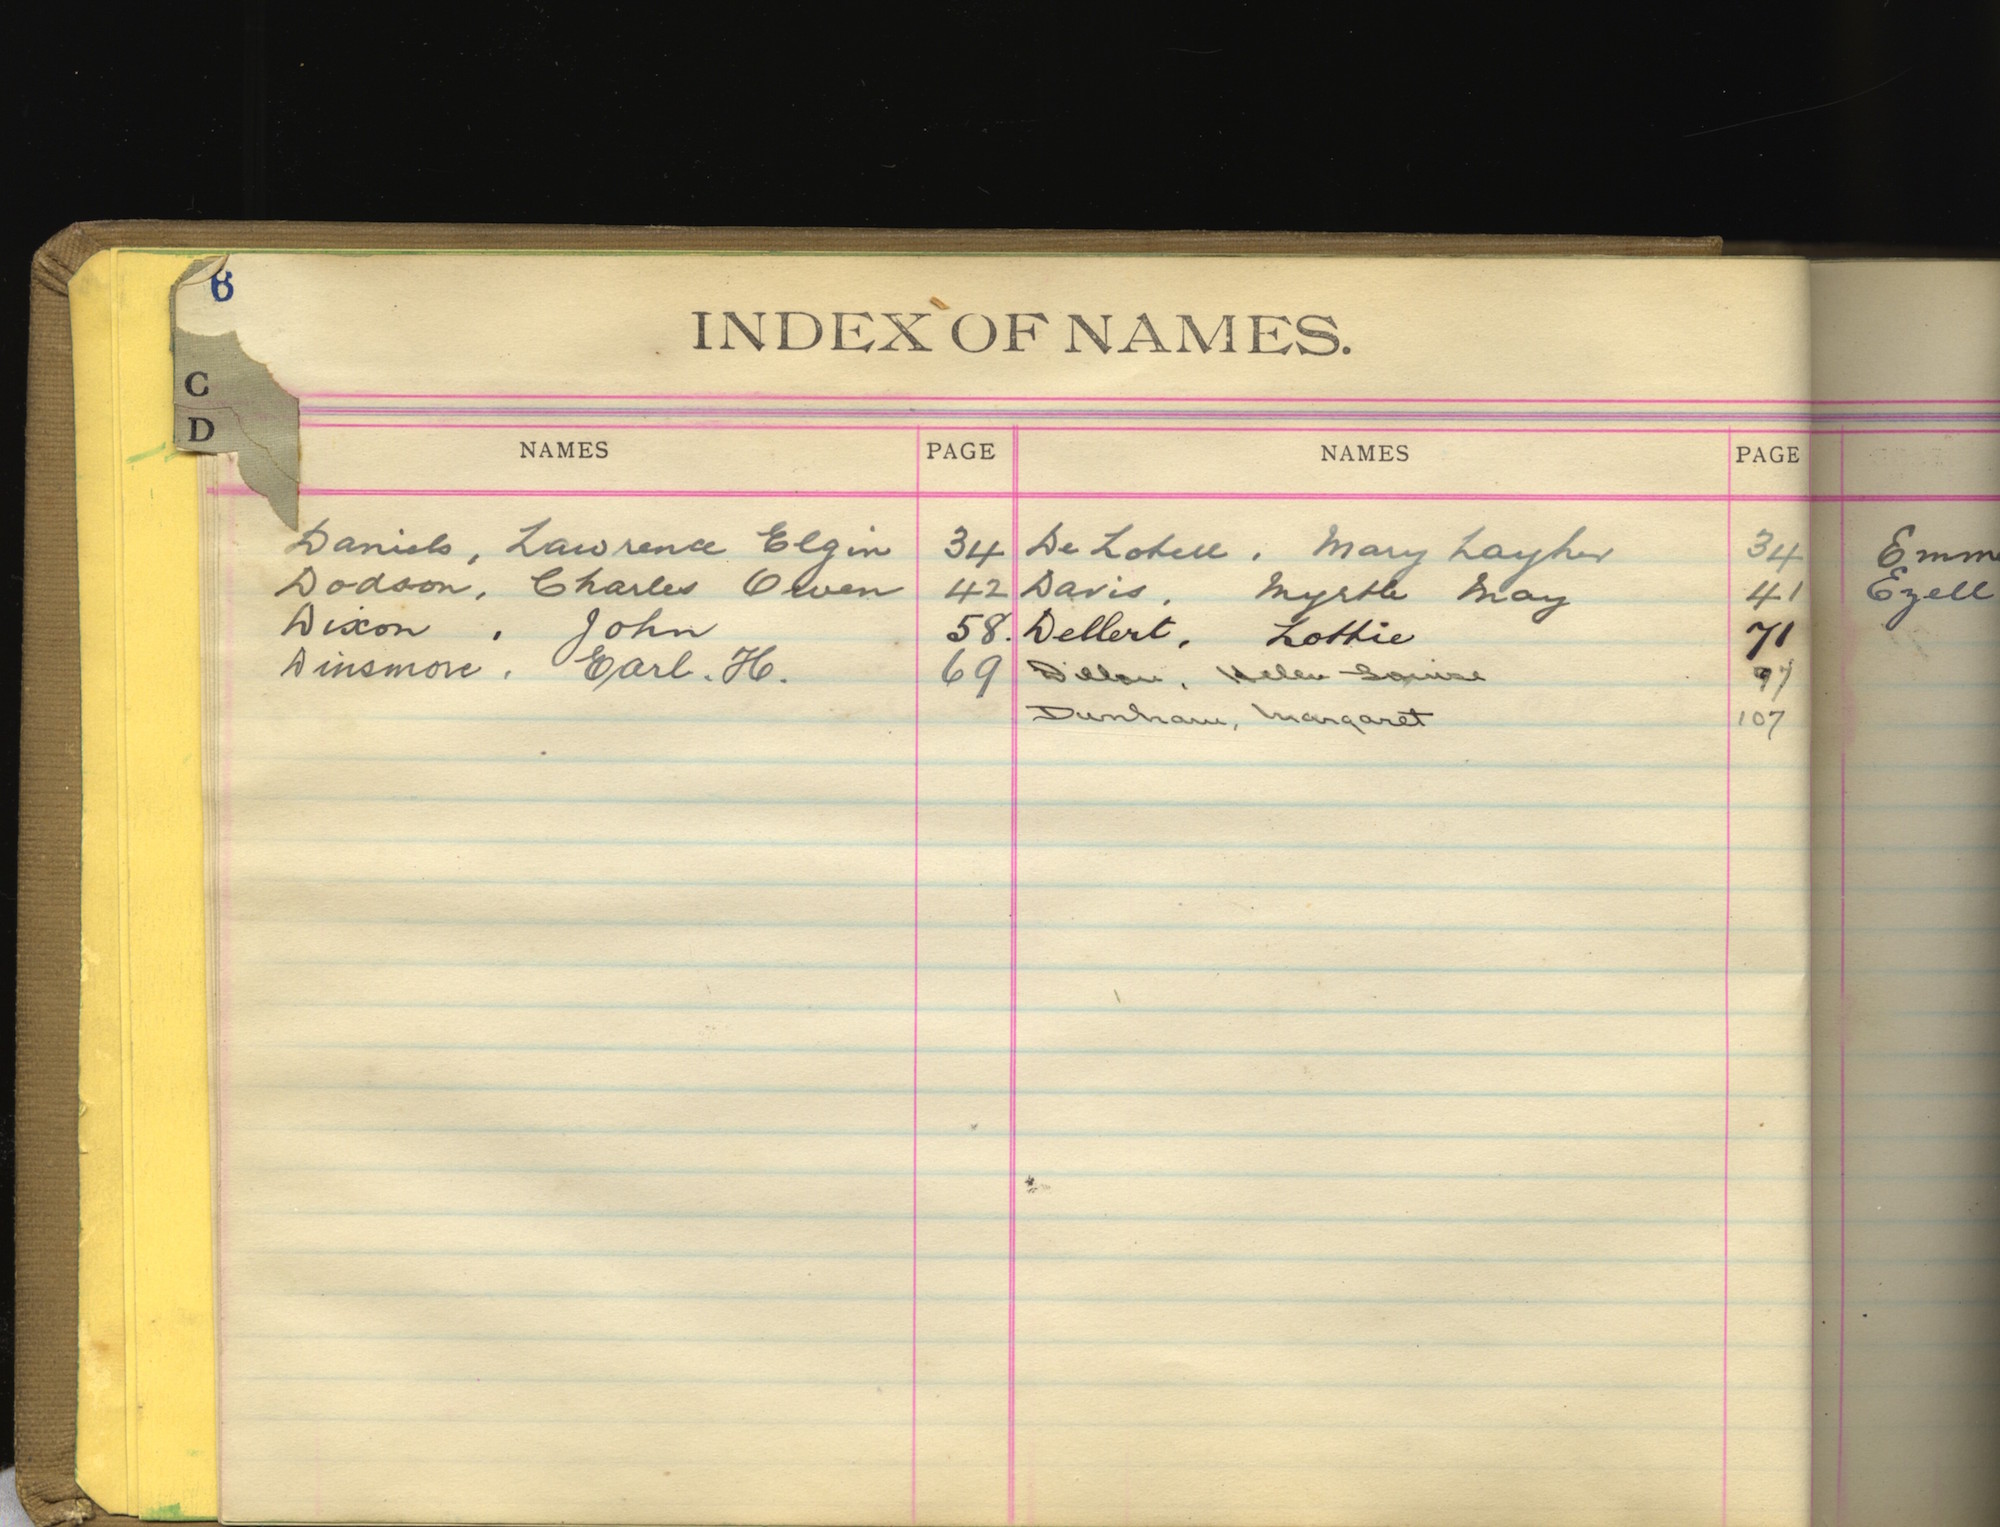 6
INDEX OF NAMES.
C
D
NAMES PAGE NAMES PAGE
Daniels, Lawrence Elgin 34 De Lobell, Mary Layher 34
Dodson, Charles Owen 42 Davis, Myrtle May 41
Dixon, John 58. Dellert, Lottie 71
Dinsmore, Earl. H. 69 Dillon, Helen Louise 97
Dunham, Margaret 107
Emm
Ezell